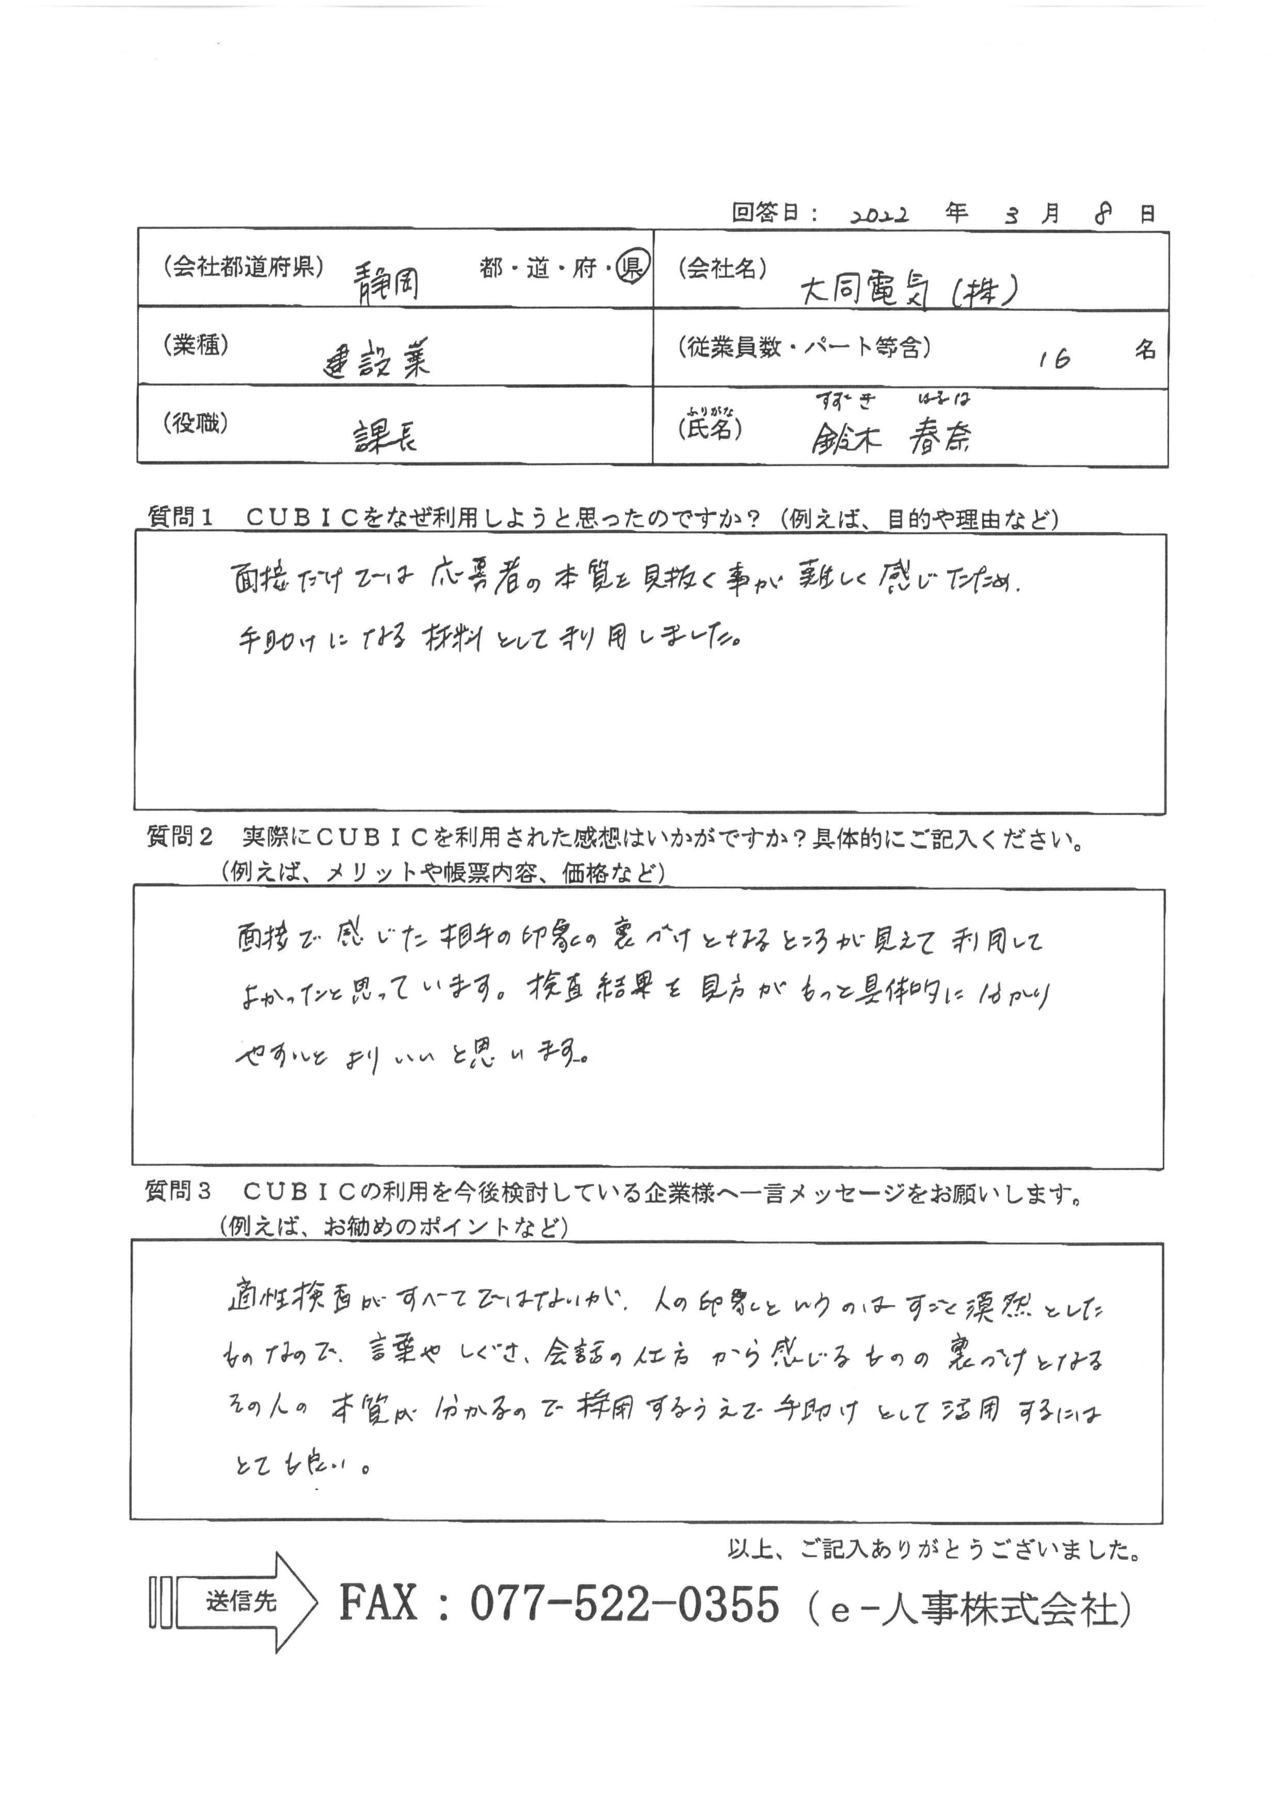 回答日： 2022 年 3 月 8 日
（会社都道府県） 静岡 都・道・府・県 （会社名） 大同電気（株）
（業種） 建設業 （従業員数・パート等含） 16 名
すずき はるな
（役職） 課長 （氏名） ふりがな 鈴木 春奈
質問１ ＣＵＢＩＣをなぜ利用しようと思ったのですか？（例えば、目的や理由など）
面接だけでは応募者の本質を見抜く事が難しく感じたため、
手助けになる材料として利用しました。
質問２ 実際にＣＵＢＩＣを利用された感想はいかがですか？具体的にご記入ください。
（例えば、メリットや帳票内容、価格など）
面接で感じた相手の印象の裏づけとなるところが見えて利用して
よかったと思っています。検査結果を見方がもっと具体的に分かり
やすいとよりいいと思います。
質問３ ＣＵＢＩＣの利用を今後検討している企業様へ一言メッセージをお願いします。
（例えば、お勧めのポイントなど）
適性検査がすべてではないが、人の印象というのはすごく漠然とした
ものなので、言葉やしぐさ、会話の仕方から感じるものの裏づけとなる
その人の本質が分かるので採用するうえで手助けとして活用するには
とても良い。
以上、ご記入ありがとうございました。
送信先 FAX：077-522-0355（ｅ-人事株式会社）